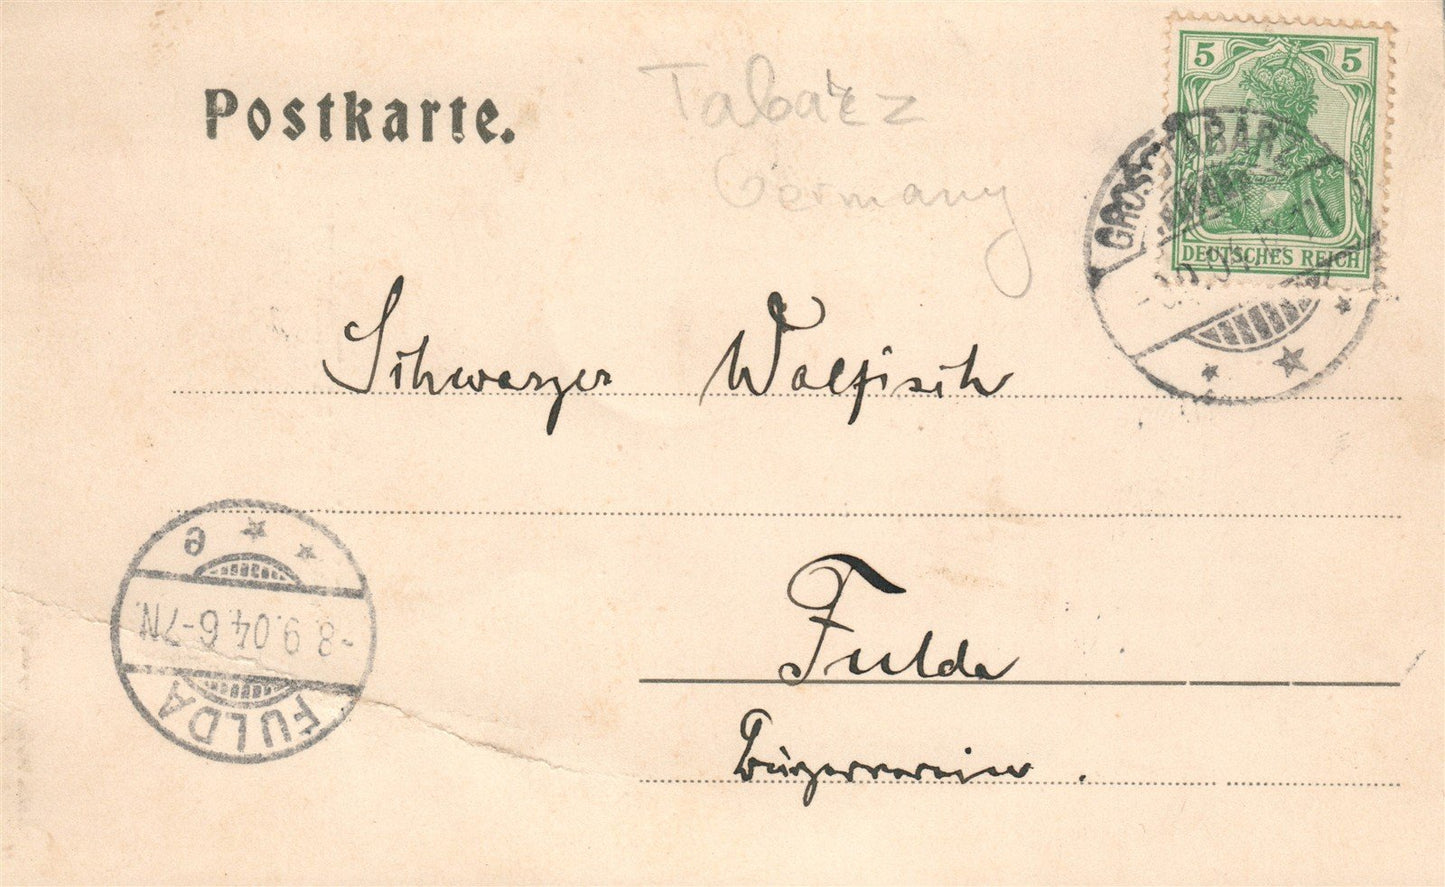 5 5
Postkarte.
Tabarz
Germany
GROSS TABARZ
DEUTSCHES REICH
Schwarzer Walfisch
Fulda
Bürgerverein.
e
-8.9.04.6-7N.
FULDA